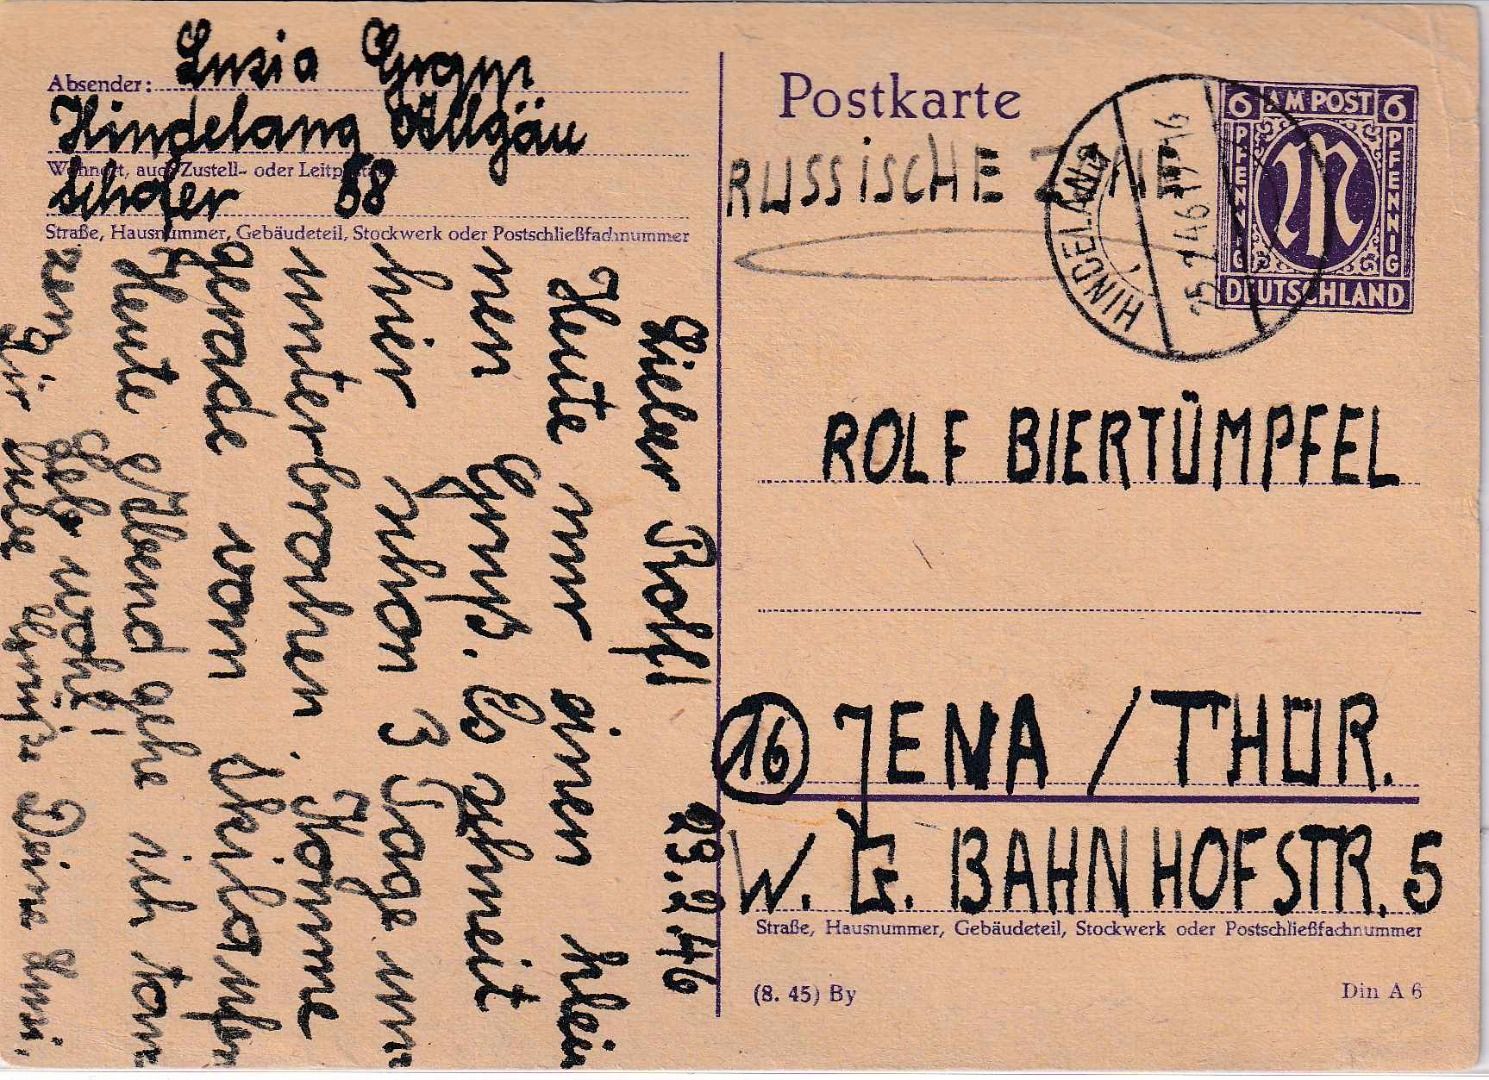 Absender: Lusia Grapp
Hindelang Allgäu
Wohnort, auch Zustell- oder Leitpostamt
Schofer 58
Straße, Hausnummer, Gebäudeteil, Stockwerk oder Postschließfachnummer
23.2.46
Lieber Rolf!
Heute nur einen klei
nen Gruß. Es schneit
hier schon 3 Tage un
unterbrochen. Komme
gerade vom Skilaufen
Heute Abend gehe ich tan
zen. Leb wohl!
Dir liebe Grüße Deine Lusi.
Postkarte
RUSSISCHE ZONE
HINDELANG
6 AM POST 6
PFENNIG
PFENNIG
M
DEUTSCHLAND
ROLF BIERTÜMPFEL
16 JENA / THÜR.
W. G. BAHNHOFSTR. 5
Straße, Hausnummer, Gebäudeteil, Stockwerk oder Postschließfachnummer
(8. 45) By
Din A 6